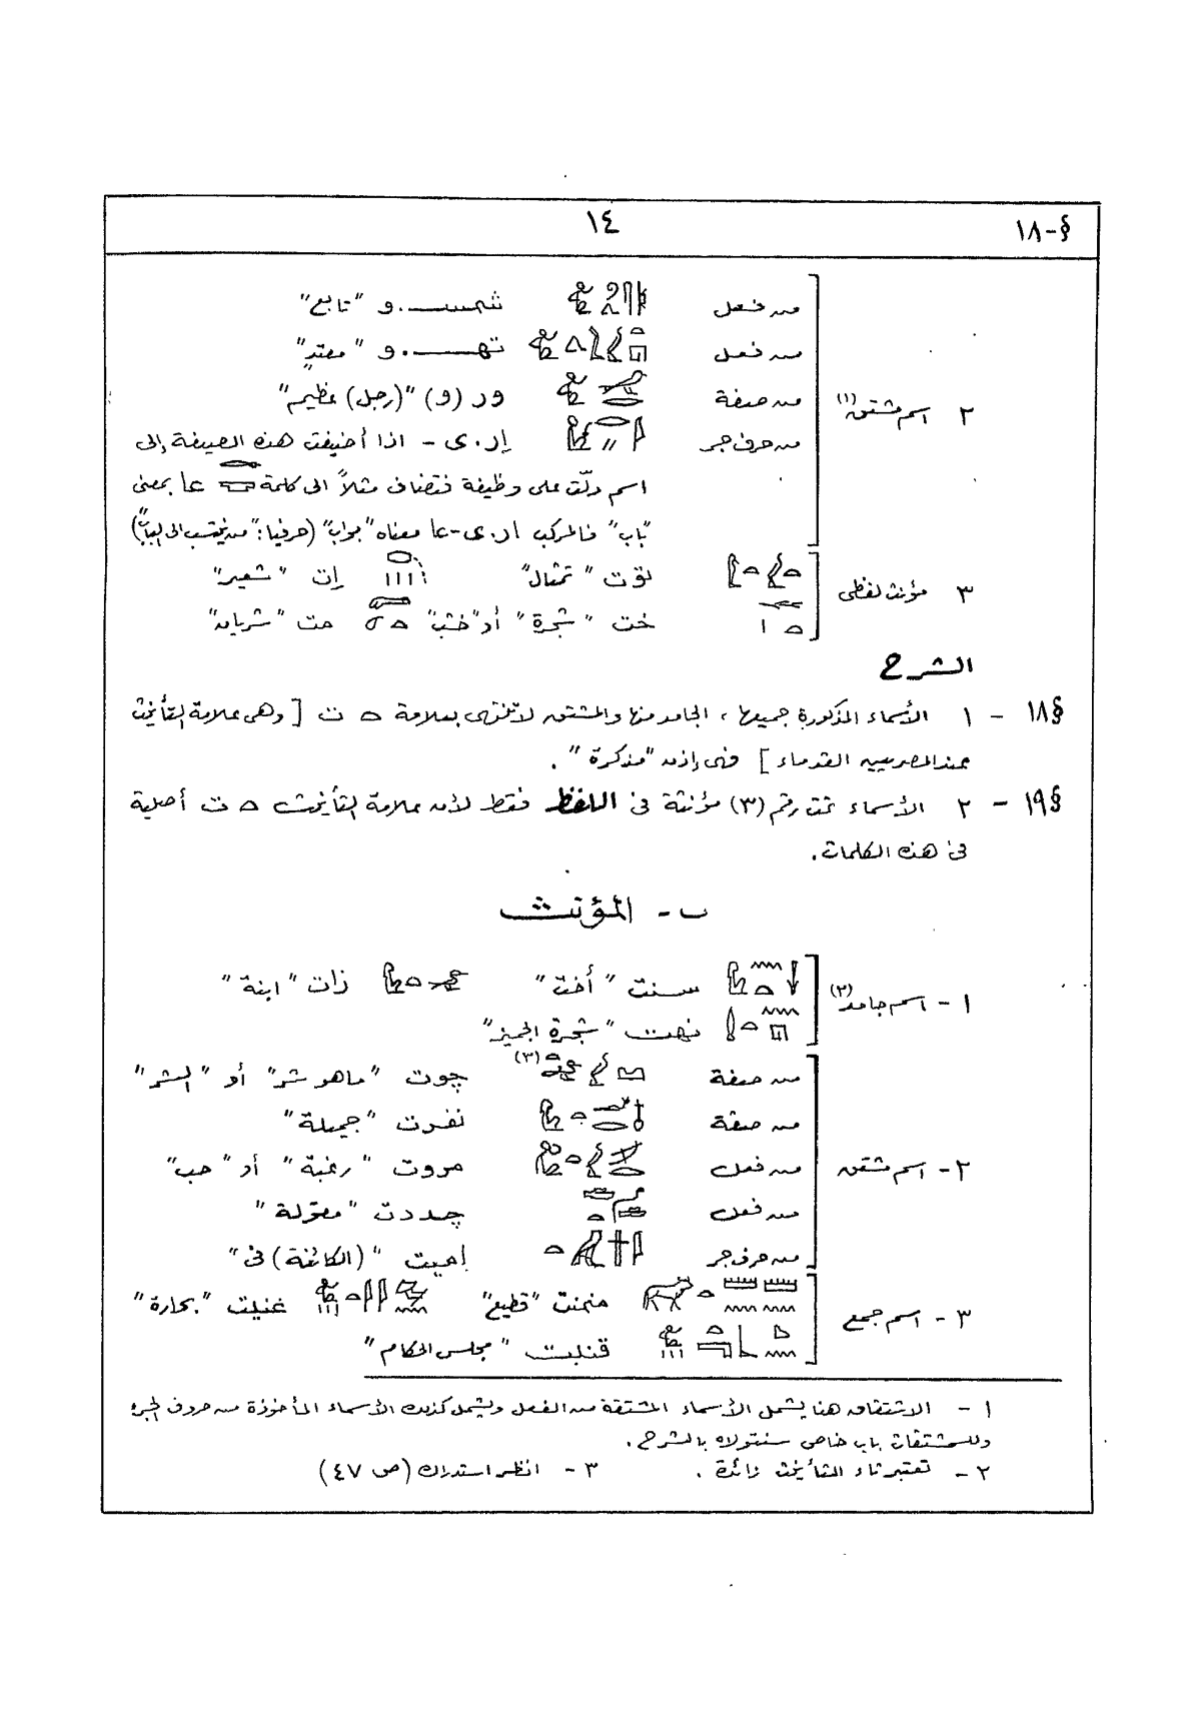 §-١٨
١٤
٢ اسم مشتق(١)
من فعل شمسـ.و "تابع"
من فعل تهـ.و "معتدٍ"
من صفة ور (و) "(رجل) عظيم"
من حرف جر إر.ى - اذا أضيفت هذه الصيغة إلى
اسم دلّت على وظيفة فتضاف مثلاً الى كلمة عا بمعنى
"باب" فالمركب ار.ى-عا معناه "بواب" (حرفيا: "من ينتسب الى الباب")
٣ مؤنث لفظى
توت "تمثال" إت "شعير"
خت "شجرة" أو "خشب" مت "شريان"
الشرح
§١٨ - ١ الأسماء المذكورة جميعها، الجامد منها والمشتق لا تنتهى بعلامة ت [وهى علامة التأنيث
عند المصريين القدماء] فهى إذن "مذكرة".
§١٩ - ٢ الأسماء تحت رقم (٣) مؤنثة فى اللفظ فقط لأن علامة التأنيث ت أصلية
فى هذه الكلمات.
ب - المؤنث
١ - اسم جامد(٢)
سنت "أخت" زات "ابنة"
نهت "شجرة الجميز"
٢ - اسم مشتق
من صفة (٣) چوت "ما هو شر" أو "الشر"
من صفة نفرت "جميلة"
من فعل مروت "رغبة" أو "حب"
من فعل چددت "مقولة"
من حرف جر إميت "(الكائنة) فى"
٣ - اسم جمع
منمنت "قطيع" خنيت "بحارة"
قنبت "مجلس الحكام"
١ - الاشتقاق هنا يشمل الأسماء المشتقة من الفعل ويشمل كذلك الأسماء المأخوذة من حروف الجر
وللمشتقات باب خاص سنتولاه بالشرح.
٢ - تعتبر تاء التأنيث زائدة. ٣ - انظر استدراك (ص ٤٧)